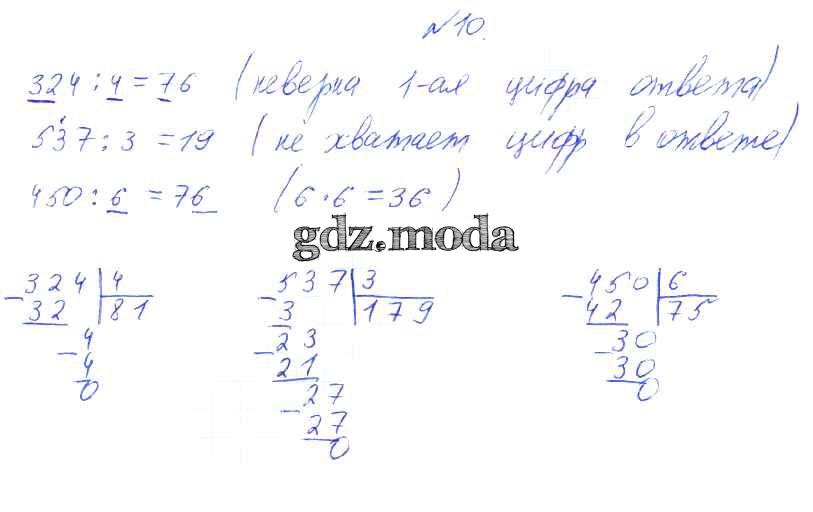 №10.
324 : 4 = 76 (неверна 1-ая цифра ответа)
537 : 3 = 19 (не хватает цифр в ответе)
450 : 6 = 76 (6 · 6 = 36)
gdz.moda
−324 | 4
32 | 81
−4
4
0
−537 | 3
3 | 179
−23
21
−27
27
0
−450 | 6
42 | 75
−30
30
0